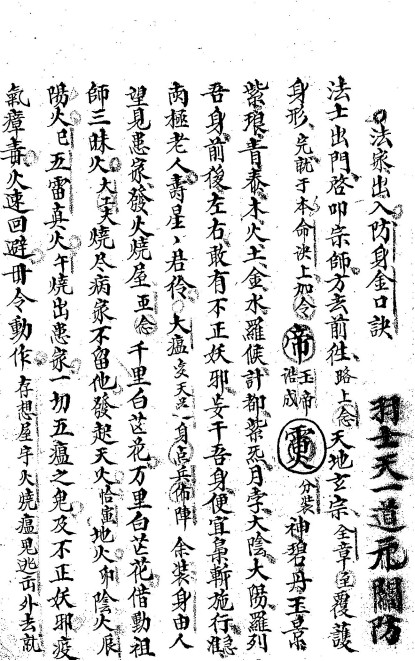 法家出入防身金口訣
羽士天一道元關防
法士出門啓叩宗師方去前往路上念天地玄宗全章覆護
身形完就于本命訣上加令帝玉帝浩成分裝神碧丹玉京
紫琅青泰木火土金水羅候計都紫炁月孛大陰大陽羅列
吾身前後左右敢有不正妖邪妄干吾身便宜梟斬施行准
南極老人壽星君伶大瘟一身兵佈陣余裝身由人
望見患家發火燒屋念千里白芒花万里白芒花借動祖
師三昧火燒尽病家不留他發起天火地火卯陰火辰
陽火巳五雷真火午燒出患家一切五瘟之鬼及不正妖邪疫
氣瘴毒火速回避毋令動作存想屋宇火燒瘟鬼逃面外去